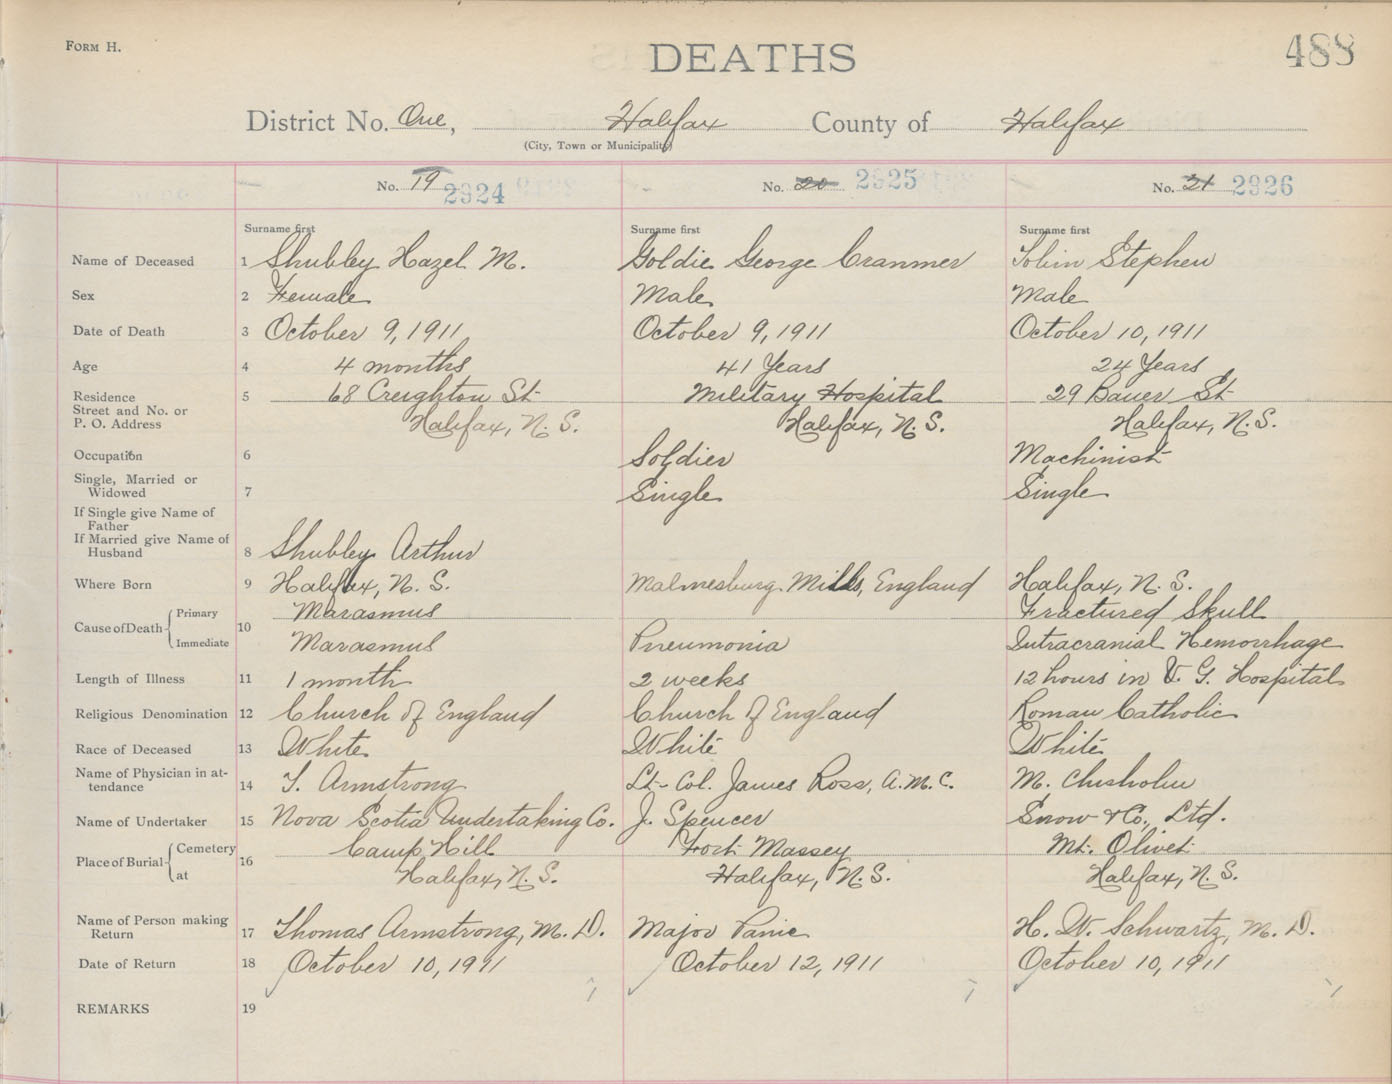 FORM H.
DEATHS
488
District No. One, Halifax County of Halifax
(City, Town or Municipality)
No. 19 2924 No. 20 2925 No. 21 2926
Surname first Surname first Surname first
Name of Deceased 1 Shubley Hazel M. Goldie George Cranmer Tobin Stephen
Sex 2 Female Male Male
Date of Death 3 October 9, 1911 October 9, 1911 October 10, 1911
Age 4 4 months 41 Years 24 Years
Residence 5 68 Creighton St Military Hospital 29 Bauer St
Street and No. or
P. O. Address Halifax, N. S. Halifax, N. S. Halifax, N. S.
Occupation 6 Soldier Machinist
Single, Married or
Widowed 7 Single Single
If Single give Name of
Father
If Married give Name of
Husband 8 Shubley Arthur
Where Born 9 Halifax, N. S. Malmesburg Mills, England Halifax, N. S.
Cause of Death Primary 10 Marasmus Fractured Skull
Immediate Marasmus Pneumonia Intracranial Hemorrhage
Length of Illness 11 1 month 2 weeks 12 hours in V. G. Hospital
Religious Denomination 12 Church of England Church of England Roman Catholic
Race of Deceased 13 White White White
Name of Physician in at-
tendance 14 T. Armstrong Lt-Col. James Ross, A.M.C. M. Chisholm
Name of Undertaker 15 Nova Scotia Undertaking Co. J. Spencer Snow & Co., Ltd.
Place of Burial Cemetery 16 Camp Hill Fort Massey Mt. Olivet
at Halifax, N. S. Halifax, N. S. Halifax, N. S.
Name of Person making
Return 17 Thomas Armstrong, M. D. Major Panic H. W. Schwartz, M. D.
Date of Return 18 October 10, 1911 October 12, 1911 October 10, 1911
REMARKS 19